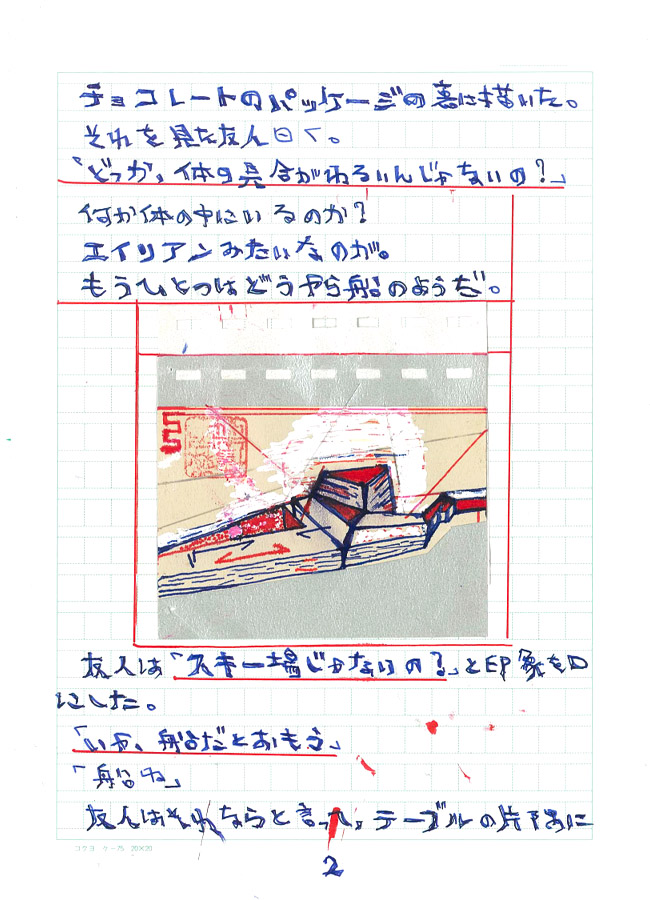 チョコレートのパッケージの裏に描いた。
それを見た友人曰く。
「どっか、体の具合がわるいんじゃないの？」
何か体の中にいるのか？
エイリアンみたいなのが。
もうひとつはどうやら船のようだ。
55
友人は「スキー場じゃないの？」と印象を口
にした。
「いや、船だとおもう」
「船ね」
友人はそれならと言って、テーブルの片すみに
コクヨ ケー75 20×20
2